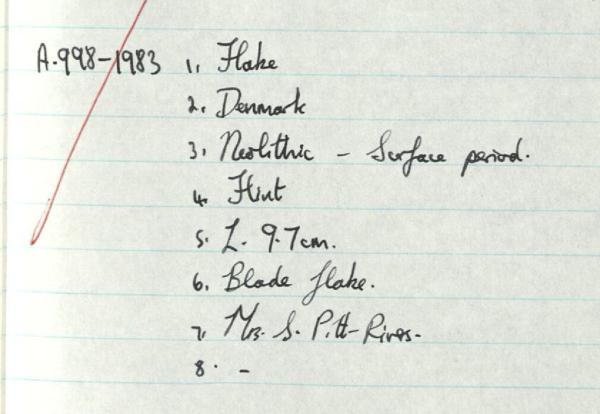 A.998-1983 1. Flake
2. Denmark
3. Neolithic - Surface period.
4. Flint
5. L. 9.7cm.
6. Blade flake.
7. Mrs. S. Pitt-Rivers.
8. -